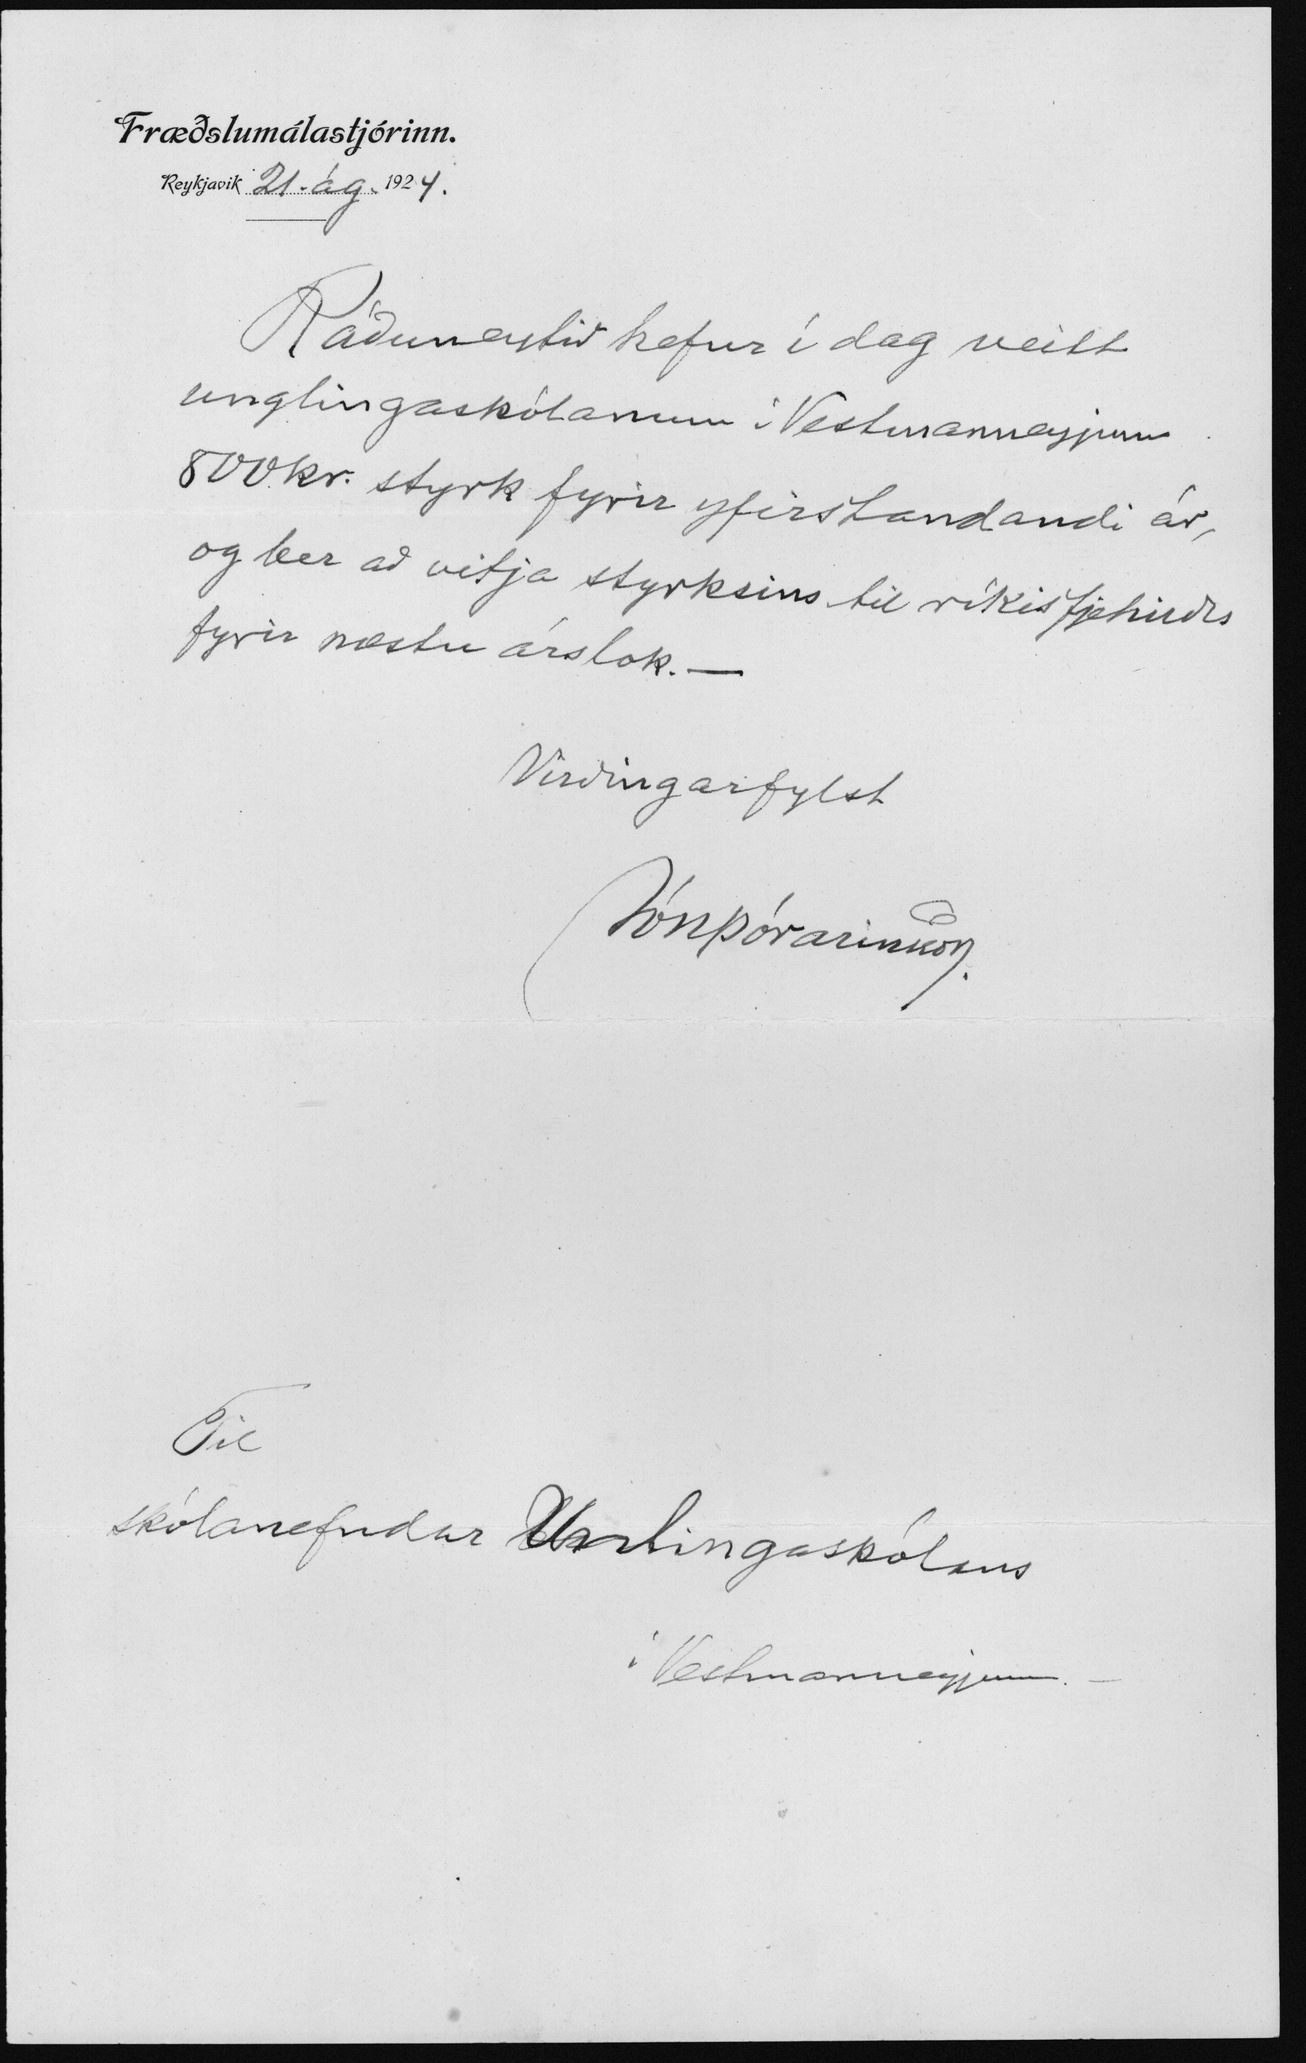 Fræðslumálastjórinn.
Reykjavík 21. ág. 1924.
Ráðuneytið hefur í dag veitt
unglingaskólanum í Vestmannaeyjum
800 kr. styrk fyrir yfirstandandi ár,
og ber að vitja styrksins til ríkisfjehirðis
fyrir næstu árslok. —
Virðingarfylst
Jón Þórarinsson.
Til
skólanefndar Unglingaskólans
í Vestmannaeyjum. —